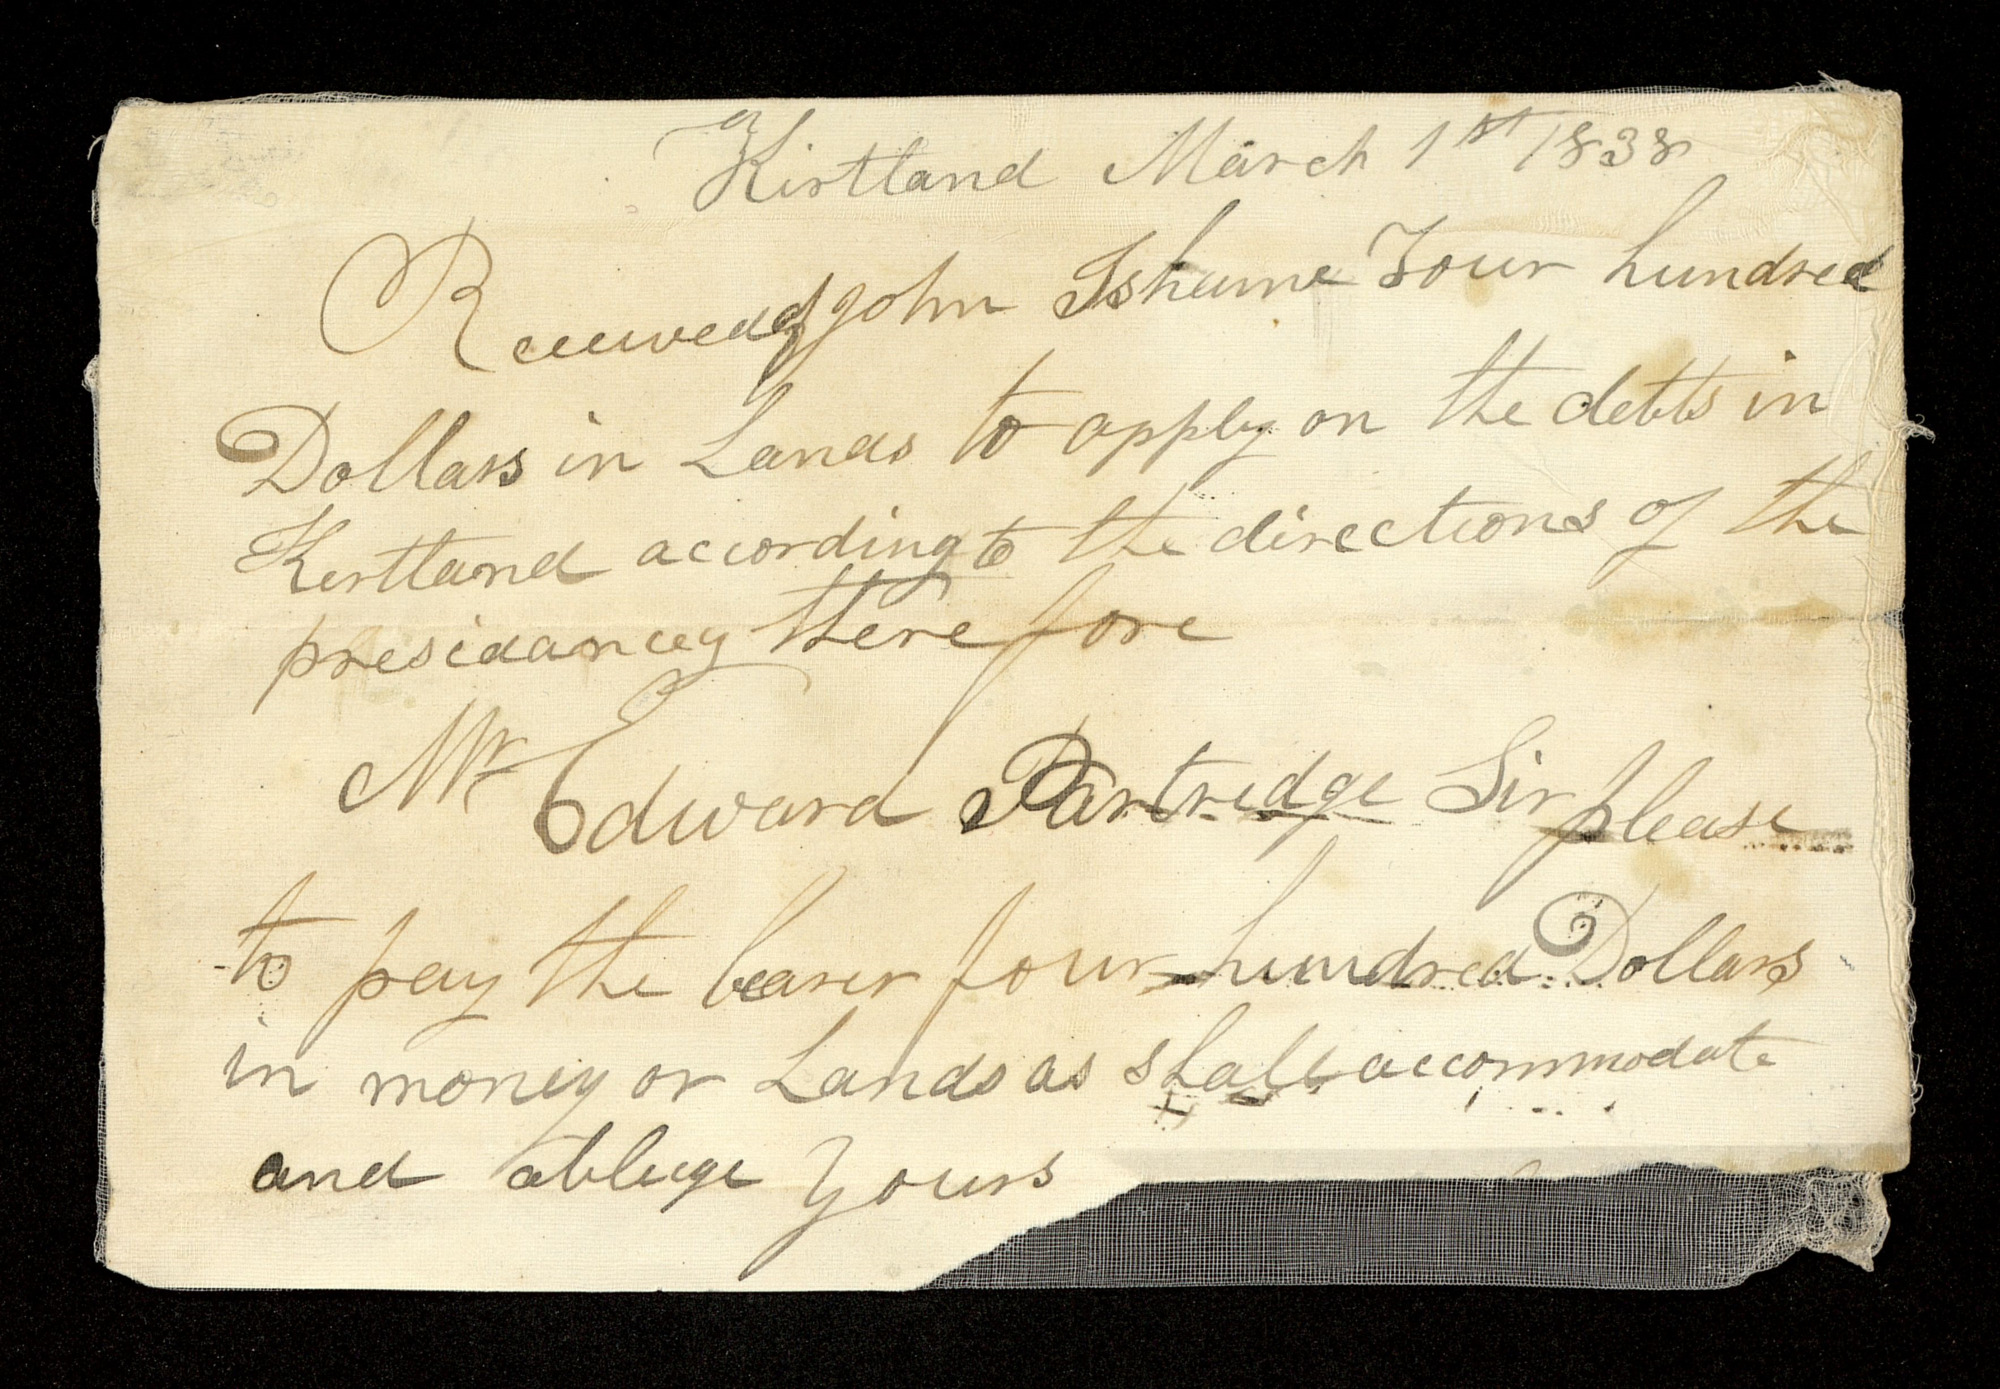 Kirtland March 1st 1838
Receiveed of John Ishume Four hundred
Dollars in Lands to apply on the debts in
Kirtland according to the directions of the
presidancey therefore
Mr Edward Partredge Sir please
to pay the bearer four hundred Dollars
in money or Lands as shall accommodate
and ablege Yours